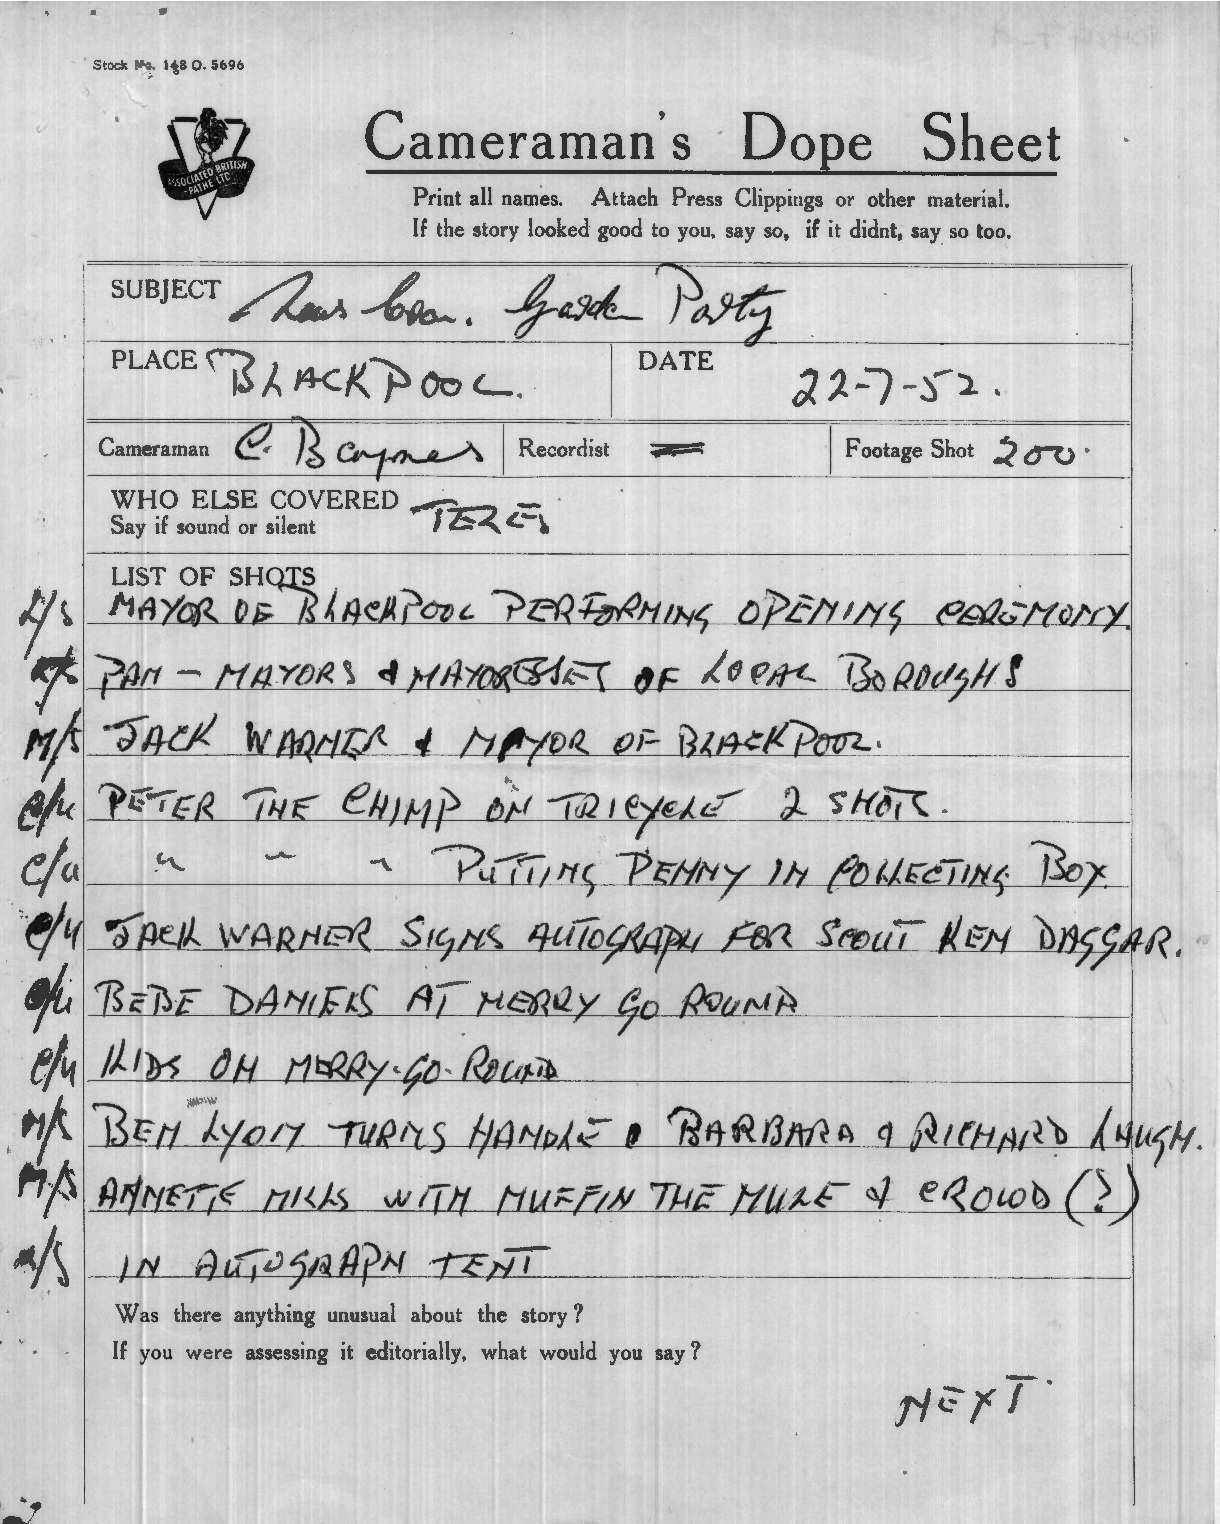 Stock No. 148 O. 5696
ASSOCIATED BRITISH
-PATHE LTD-
Cameraman's Dope Sheet
Print all names. Attach Press Clippings or other material.
If the story looked good to you, say so, if it didnt, say so too.
SUBJECT Garden Party
PLACE BLACKPOOL.
DATE 22-7-52.
Cameraman C. Baynes
Recordist
Footage Shot 200.
WHO ELSE COVERED
Say if sound or silent
LIST OF SHOTS
L/S MAYOR OF BLACKPOOL PERFORMING OPENING CEREMONY.
PAN - MAYORS & MAYORESSES OF LOCAL BOROUGHS
M/S JACK WARNER & MAYOR OF BLACKPOOL.
C/U PETER THE CHIMP ON TRICYCLE 2 SHOTS.
C/U " " " PUTTING PENNY IN COLLECTING BOX.
C/U JACK WARNER SIGNS AUTOGRAPH FOR SCOUT KEN DAGGAR.
C/U BEBE DANIELS AT MERRY GO ROUND
C/U KIDS ON MERRY-GO-ROUND
M/S BEN LYON TURNS HANDLE BARBARA & RICHARD LAUGH.
M/S ANNETTE MILLS WITH MUFFIN THE MULE & CROWD (?)
M/S IN AUTOGRAPH TENT
Was there anything unusual about the story?
If you were assessing it editorially, what would you say?
NEXT.